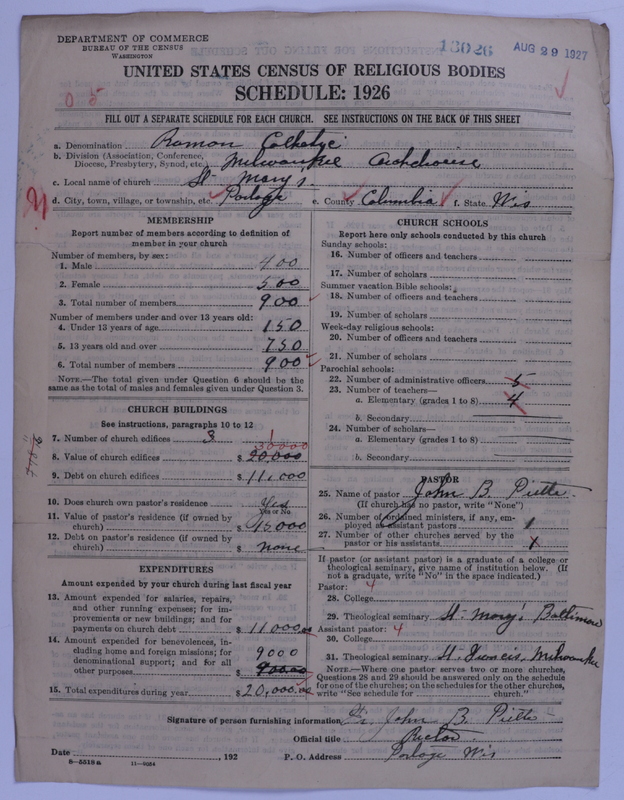 DEPARTMENT OF COMMERCE
BUREAU OF THE CENSUS
WASHINGTON
13026
AUG 29 1927
UNITED STATES CENSUS OF RELIGIOUS BODIES
SCHEDULE: 1926
0 5
FILL OUT A SEPARATE SCHEDULE FOR EACH CHURCH. SEE INSTRUCTIONS ON THE BACK OF THIS SHEET
a. Denomination Roman
b. Division (Association, Conference,
Diocese, Presbytery, Synod, etc.) Milwaukee
c. Local name of church St Mary's
d. City, town, village, or township, etc. Portage e. County Columbia f. State Wis
MEMBERSHIP
Report number of members according to definition of
member in your church
Number of members, by sex:
1. Male 400
2. Female 500
3. Total number of members 900
Number of members under and over 13 years old:
4. Under 13 years of age 150
5. 13 years old and over 750
6. Total number of members 900
NOTE.—The total given under Question 6 should be
same as the total of males and females given under Question 3.
CHURCH BUILDINGS
See instructions, paragraphs 10 to 12
7. Number of church edifices 3 1
30000
8. Value of church edifices $ 20,000
9. Debt on church edifices $ 11,000
10. Does church own pastor's residence Yes
Yes or No
11. Value of pastor's residence (if owned by
church) $ 15,000
12. Debt on pastor's residence (if owned by
church) $ none
EXPENDITURES
Amount expended by your church during last fiscal year
13. Amount expended for salaries, repairs,
and other running expenses; for im-
provements or new buildings; and for
payments on church debt $ 11,000
14. Amount expended for benevolences, in-
cluding home and foreign missions; for
denominational support; and for all
other purposes
9000
$
15. Total expenditures during year $ 20,000.00
CHURCH SCHOOLS
Report here only schools conducted by this church
Sunday schools:
16. Number of officers and teachers
17. Number of scholars
Summer vacation Bible schools:
18. Number of officers and teachers
19. Number of scholars
Week-day religious schools:
20. Number of officers and teachers
21. Number of scholars
Parochial schools:
22. Number of administrative officers 5
23. Number of teachers—
a. Elementary (grades 1 to 8) 4
b. Secondary
24. Number of scholars—
a. Elementary (grades 1 to 8)
b. Secondary
PASTOR
25. Name of pastor John B. Piette
(If church has no pastor, write "None")
26. Number of ordained ministers, if any, em-
ployed as assistant pastors 1
27. Number of other churches served by the
pastor or his assistants 1
If pastor (or assistant pastor) is a graduate of a college or
theological seminary, give name of institution below. (If
not a graduate, write "No" in the space indicated.)
Pastor: 4
28. College
29. Theological seminary St Mary's Baltimore
Assistant pastor: 4
30. College
31. Theological seminary St Francis, Milwaukee
NOTE.—Where one pastor serves two or more churches,
Questions 28 and 29 should be answered only on the schedule
for one of the churches; on the schedules for the other churches,
write "See schedule for church."
Signature of person furnishing information John B. Piette
Official title Rector
Date , 192 P. O. Address Portage Wis
8-5518a 11-9034